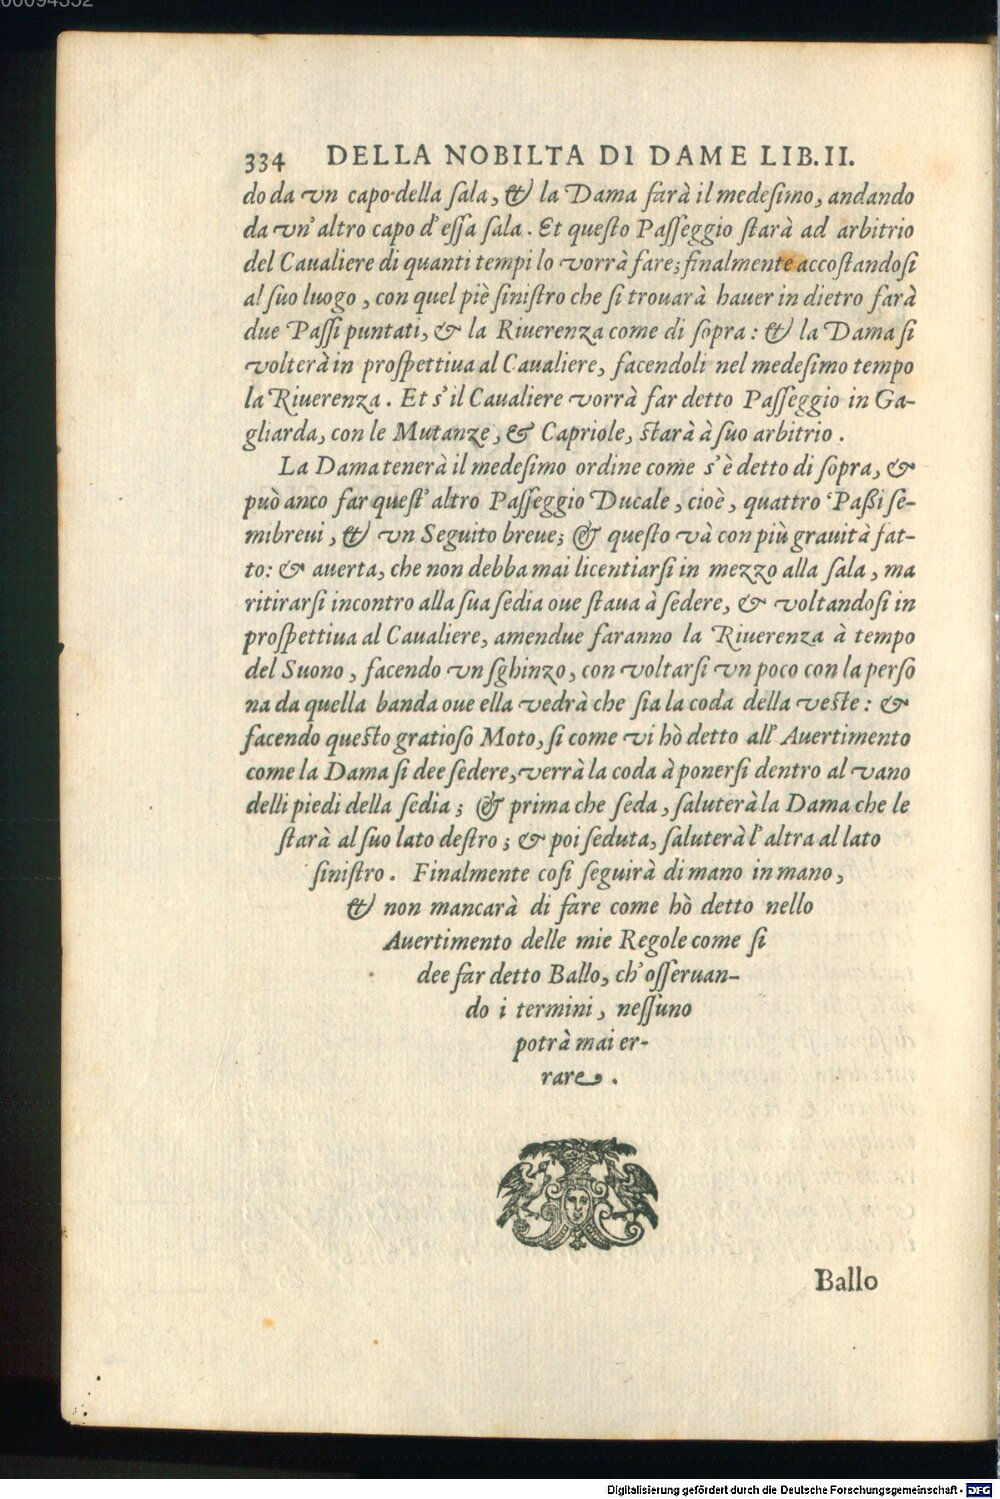 334 DELLA NOBILTA DI DAME LIB. II.
do da vn capo della ſala, & la Dama farà il medeſimo, andando
da vn' altro capo d'eſſa ſala. Et queſto Paſſeggio ſtarà ad arbitrio
del Caualiere di quanti tempi lo vorrà fare; finalmente accoſtandoſi
al ſuo luogo, con quel piè ſiniſtro che ſi trouarà hauer in dietro farà
due Paſſi puntati, & la Riuerenza come di ſopra: & la Dama ſi
volterà in proſpettiua al Caualiere, facendoli nel medeſimo tempo
la Riuerenza. Et s'il Caualiere vorrà far detto Paſſeggio in Ga-
gliarda, con le Mutanze, & Capriole, ſtarà à ſuo arbitrio.
La Dama tenerà il medeſimo ordine come s'è detto di ſopra, &
può anco far queſt' altro Paſſeggio Ducale, cioè, quattro Paßi ſe-
mibreui, & vn Seguito breue; & queſto và con più grauità fat-
to: & auerta, che non debba mai licentiarſi in mezzo alla ſala, ma
ritirarſi incontro alla ſua ſedia oue ſtaua à ſedere, & voltandoſi in
proſpettiua al Caualiere, amendue faranno la Riuerenza à tempo
del Suono, facendo vn ſghinzo, con voltarſi vn poco con la perſo
na da quella banda oue ella vedrà che ſia la coda della veſte: &
facendo queſto gratioſo Moto, ſi come vi hò detto all' Auertimento
come la Dama ſi dee ſedere, verrà la coda à ponerſi dentro al vano
delli piedi della ſedia; & prima che ſeda, ſaluterà la Dama che le
ſtarà al ſuo lato deſtro; & poi ſeduta, ſaluterà l'altra al lato
ſiniſtro. Finalmente coſi ſeguirà di mano in mano,
& non mancarà di fare come hò detto nello
Auertimento delle mie Regole come ſi
dee far detto Ballo, ch' oſſeruan-
do i termini, neſſuno
potrà mai er-
rare.
Ballo
Digitalisierung gefördert durch die Deutsche Forschungsgemeinschaft - DFG